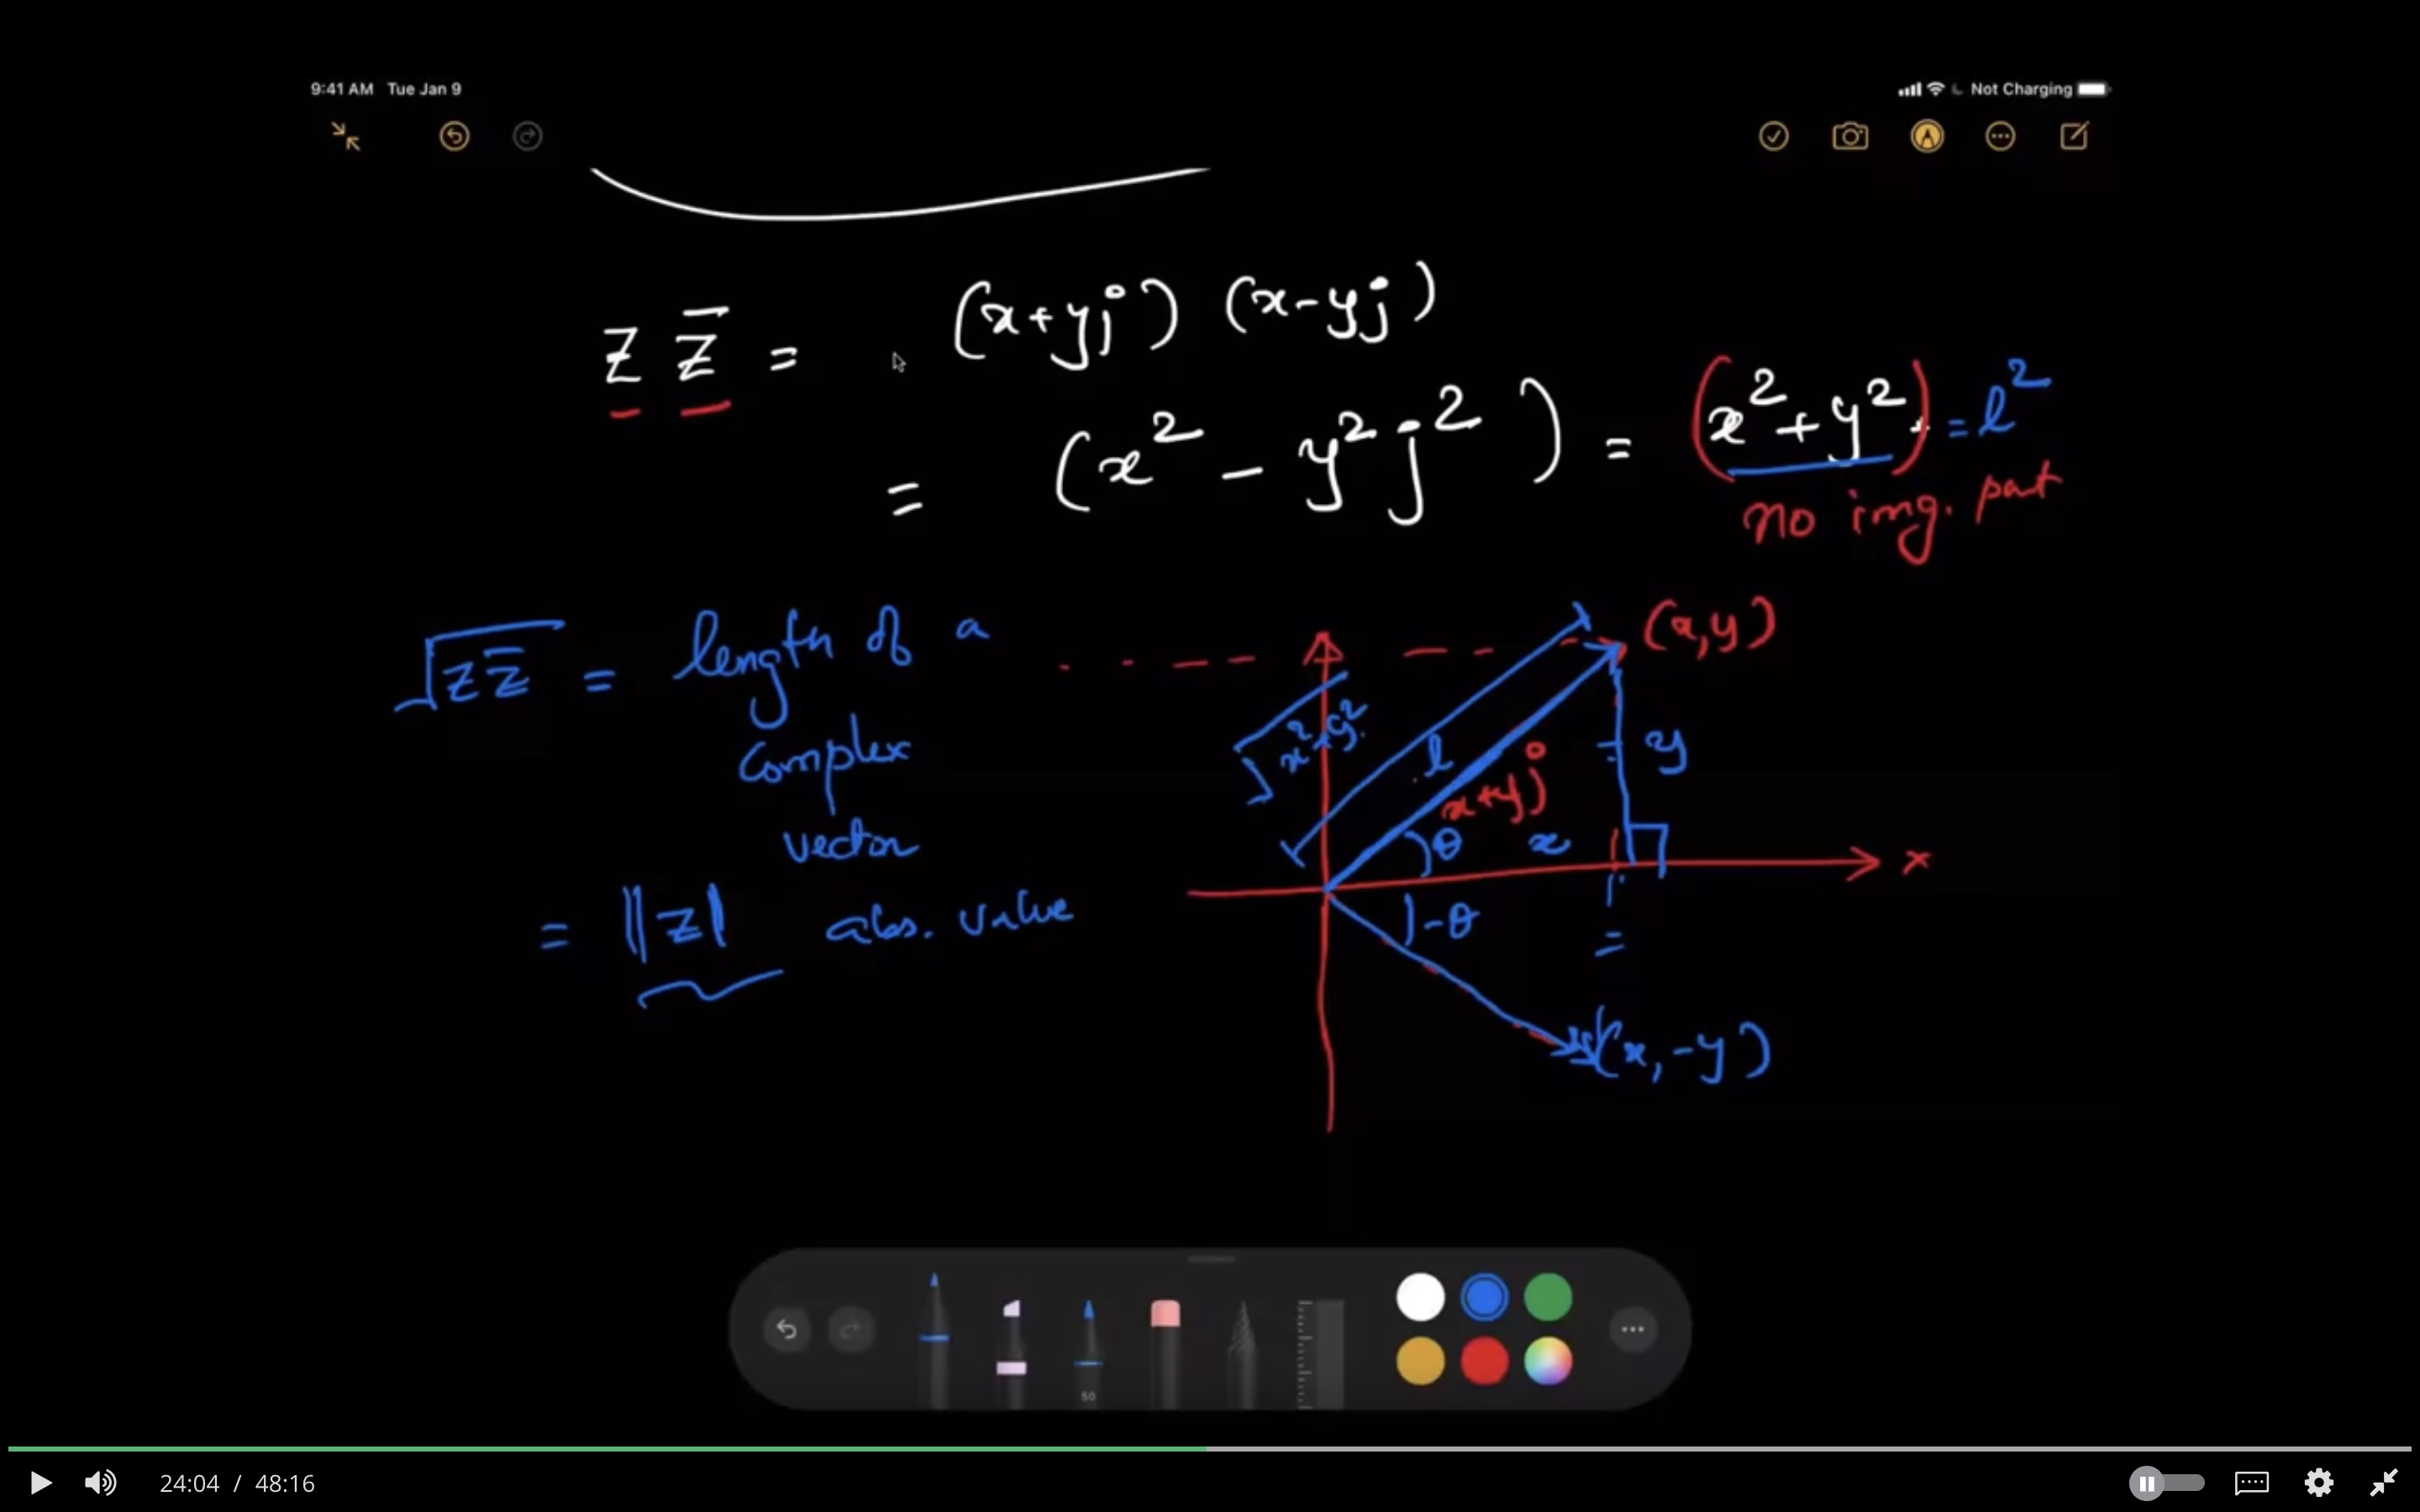 9:41 AM Tue Jan 9
Not Charging
z z̅ = (x+yj) (x-yj)
= (x² - y²j²) = (x²+y²) = l²
no img. part
√(z z̅) = length of a
complex
vector
= ||z|| abs. value
(x,y)
√(x²+y²)
l
y
x+yj
θ
x
x
-θ
(x,-y)
50
24:04 / 48:16